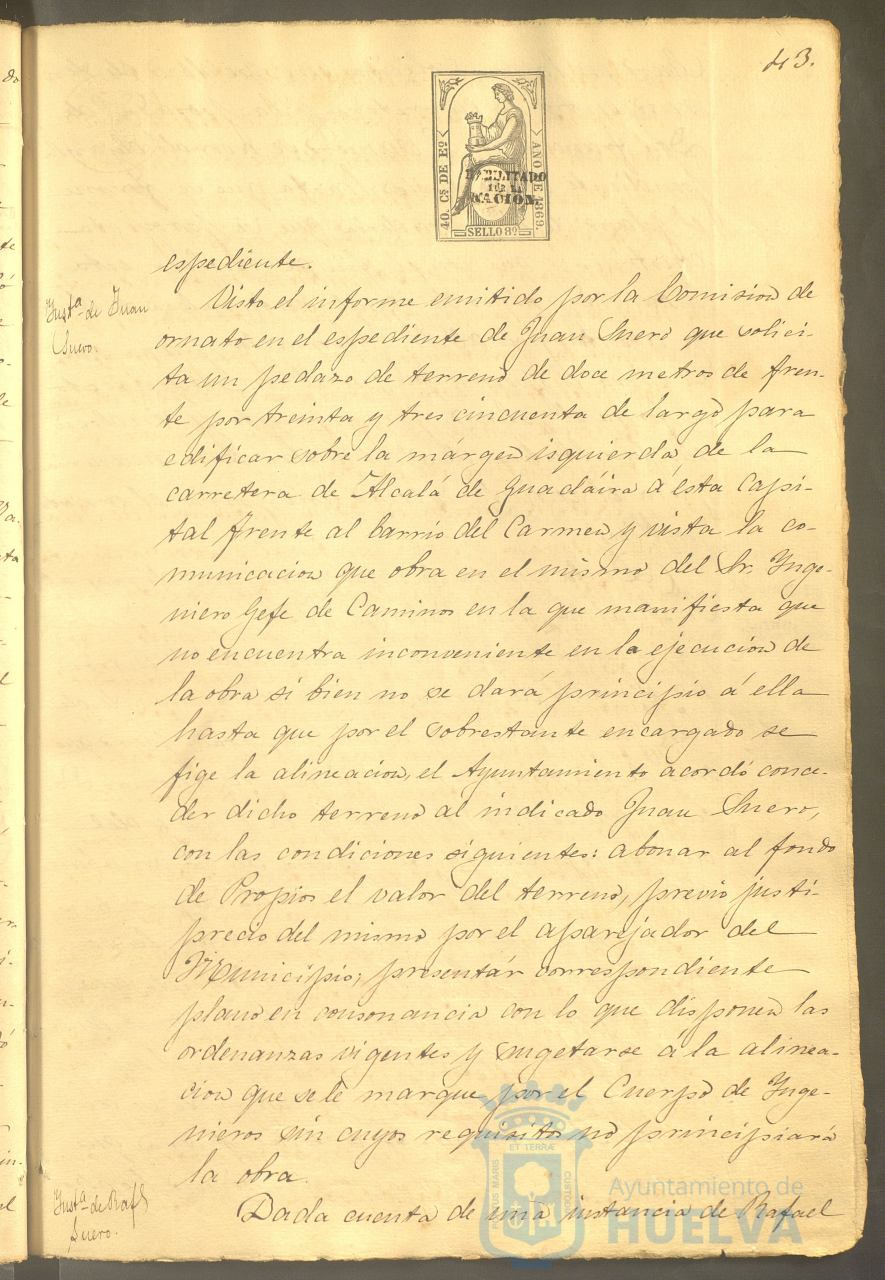 43.
40. Cs DE Eo
AÑO DE 1869.
HABILITADO
POR LA
NACION.
SELLO 8º
espediente.
Insta. de Juan
Suero.
Visto el informe emitido por la Comision de
ornato en el espediente de Juan Suero que solici-
ta un pedazo de terreno de doce metros de fren-
te por treinta y tres cincuenta de largo para
edificar sobre la márgen isquierda de la
carretera de Alcalá de Guadaira á esta Capi-
tal frente al barrio del Carmen y vista la co-
municacion que obra en el mismo del Sr. Inge-
niero Gefe de Caminos en la que manifiesta que
no encuentra inconveniente en la ejecucion de
la obra si bien no se dará principio á ella
hasta que por el sobrestante encargado se
fige la alineacion, el Ayuntamiento acordó conce-
der dicho terreno al indicado Juan Suero,
con las condiciones siguientes: abonar al fondo
de Propios el valor del terreno, previo justi-
precio del mismo por el aparejador del
Municipio; presentár correspondiente
plano en consonancia con lo que disponen las
ordenanzas vigentes y sugetarse á la alinea-
cion que se le marque por el Cuerpo de Inge-
nieros sin cuyos requisitos no principiará
la obra.
Insta. de Rafl.
Suero.
Dada cuenta de una instancia de Rafael
PORTUS MARIS
ET TERRÆ
CUSTODIA
Ayuntamiento de
HUELVA